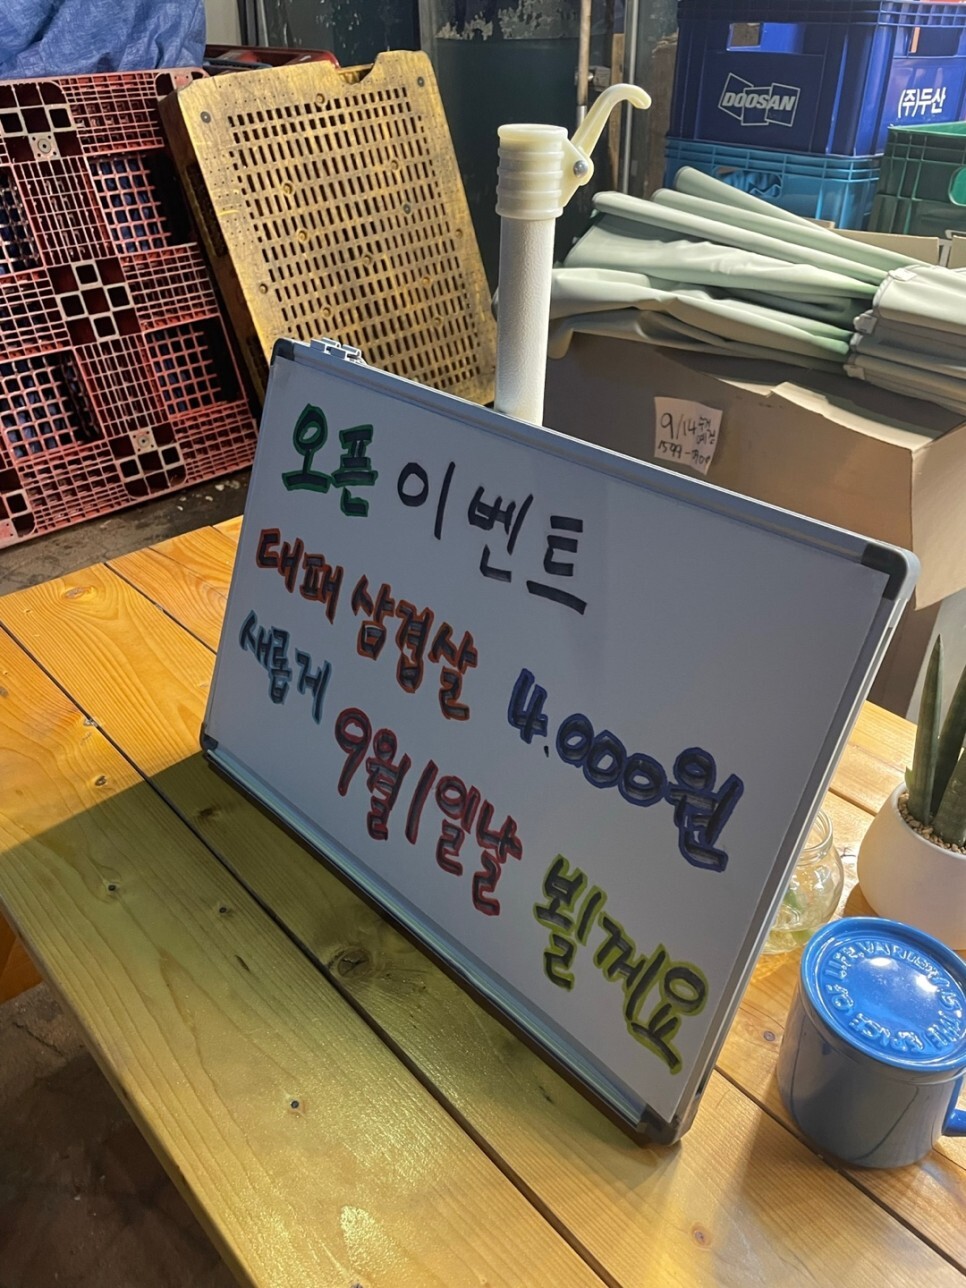 오픈 이벤트
대패 삼겹살 4.000원
새롭게 9월 1일날 뵐게요
DOOSAN
(주)두산
9/14